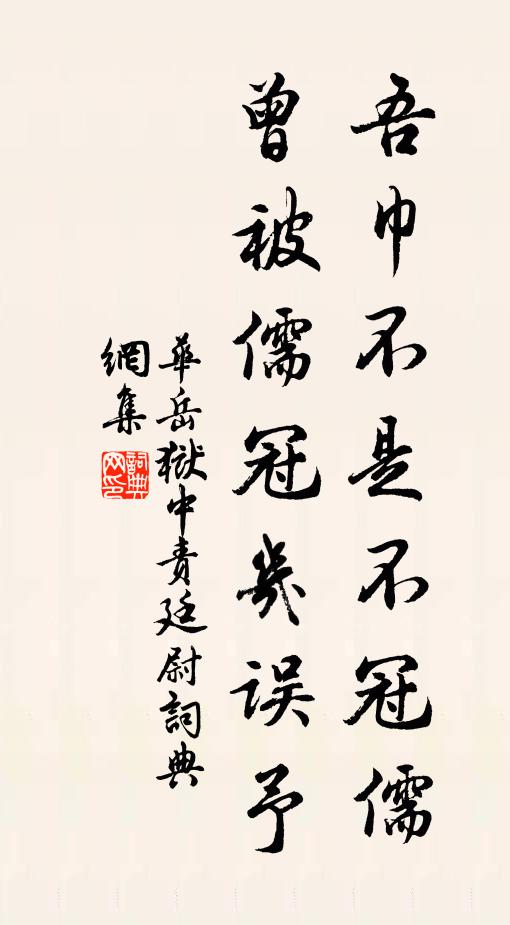 吾巾不是不冠儒
曾被儒冠幾误予
華岳獄中責廷尉詞典
網集
詞典
网印